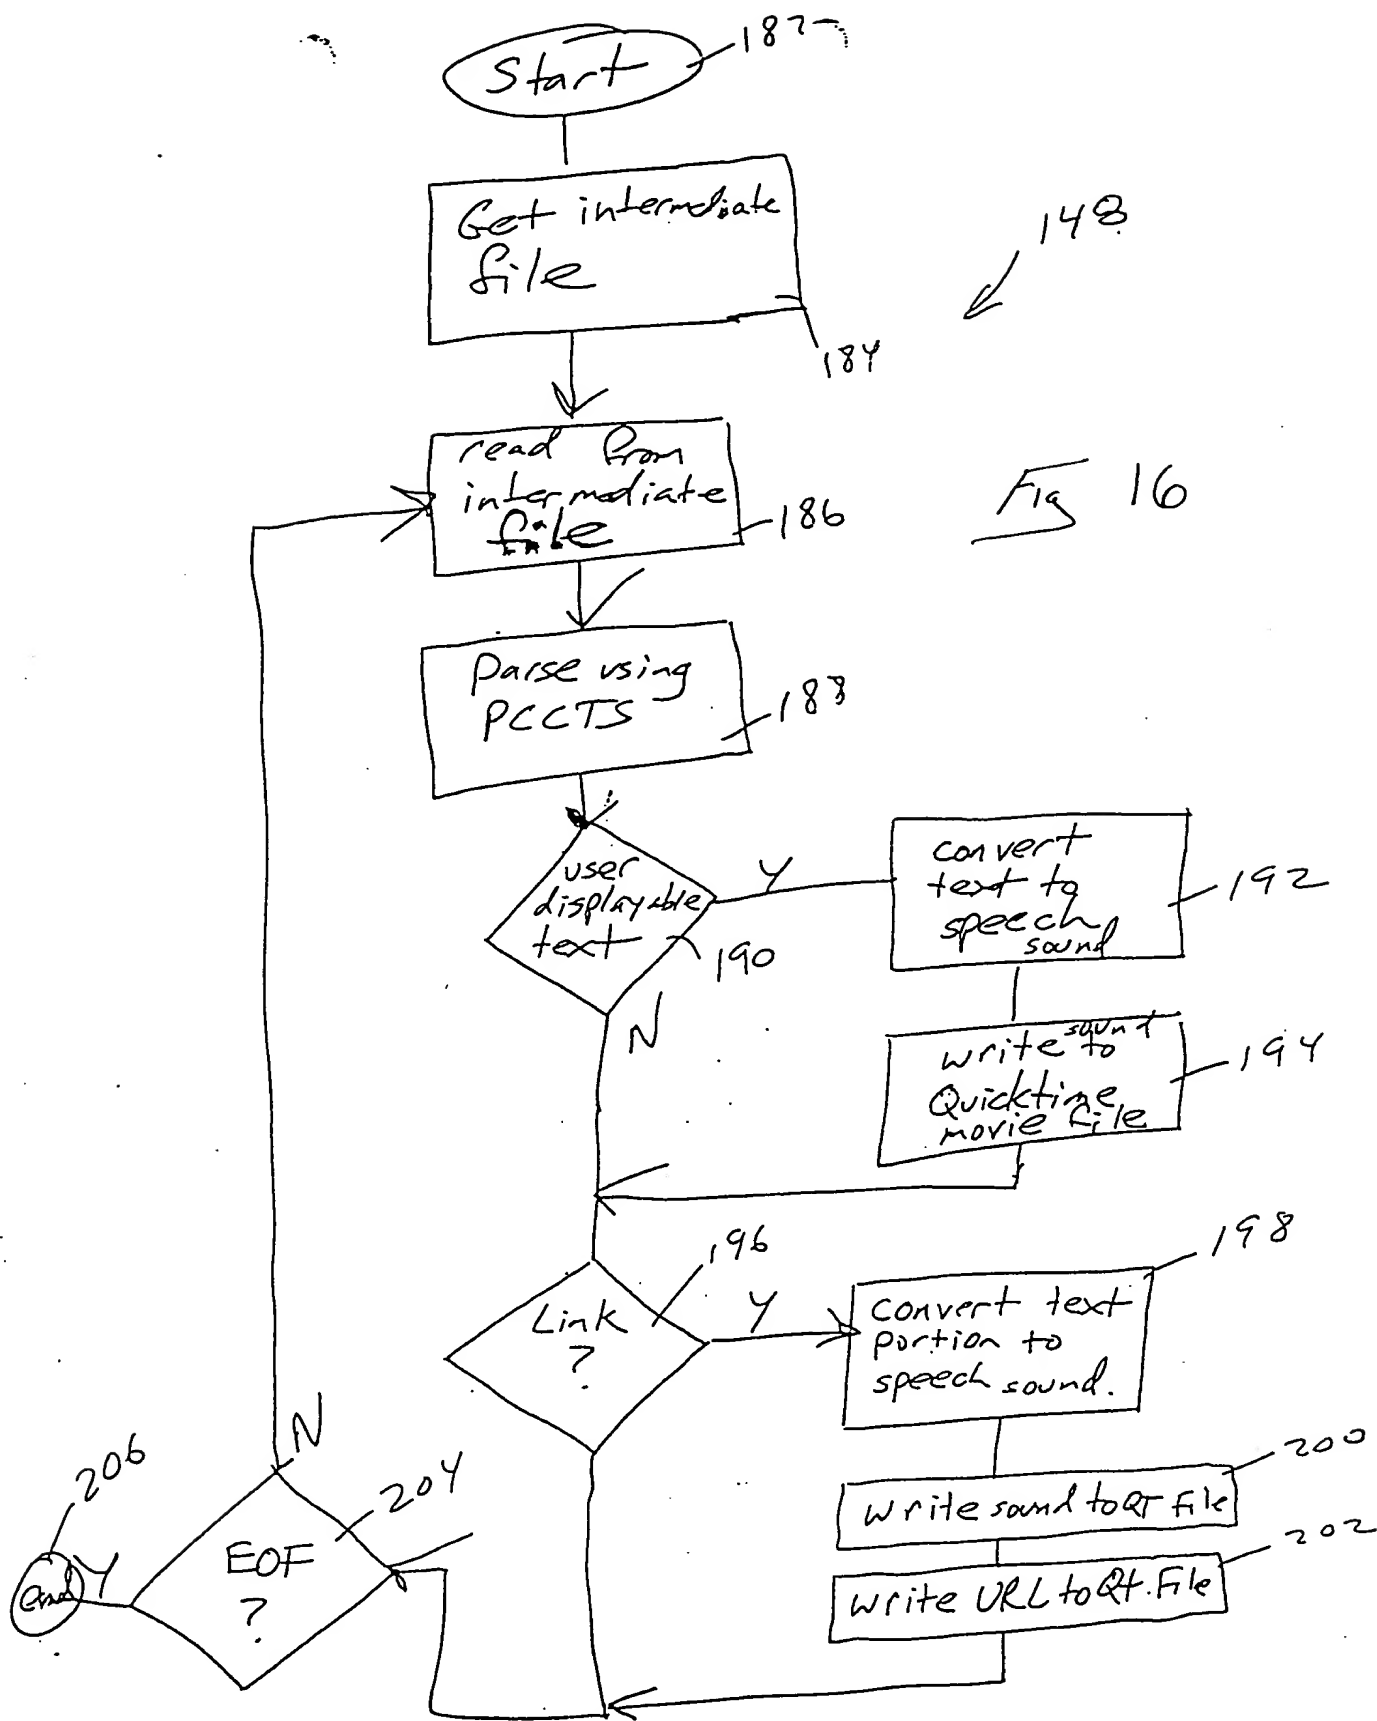 Start
182
Get intermediate
file
184
148
read from
intermediate
file
186
Fig 16
Parse using
PCCTS
188
user
displayable
text
190
Y
N
convert
text to
speech
sound
192
write sound
to
Quicktime
movie file
194
Link
?
196
Y
convert text
portion to
speech sound.
198
write sound to QT file
200
write URL to Qt. File
202
N
EOF
?
204
Y
end
206